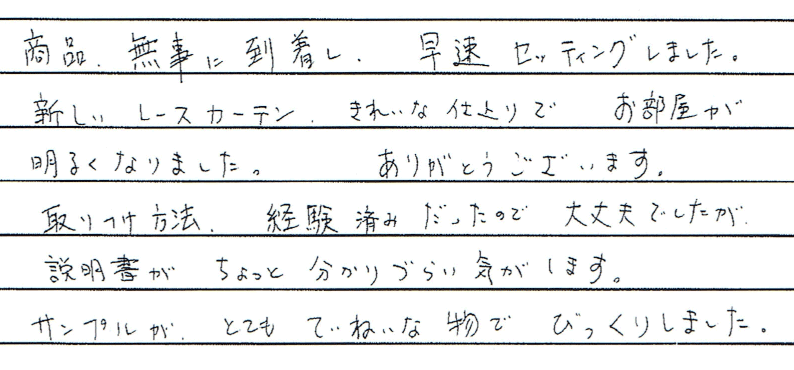 商品、無事に到着し、早速セッティングしました。
新しいレースカーテン、きれいな仕上りでお部屋が
明るくなりました。ありがとうございます。
取りつけ方法、経験済みだったので大丈夫でしたが、
説明書がちょっと分かりづらい気がします。
サンプルが、とてもていねいな物でびっくりしました。